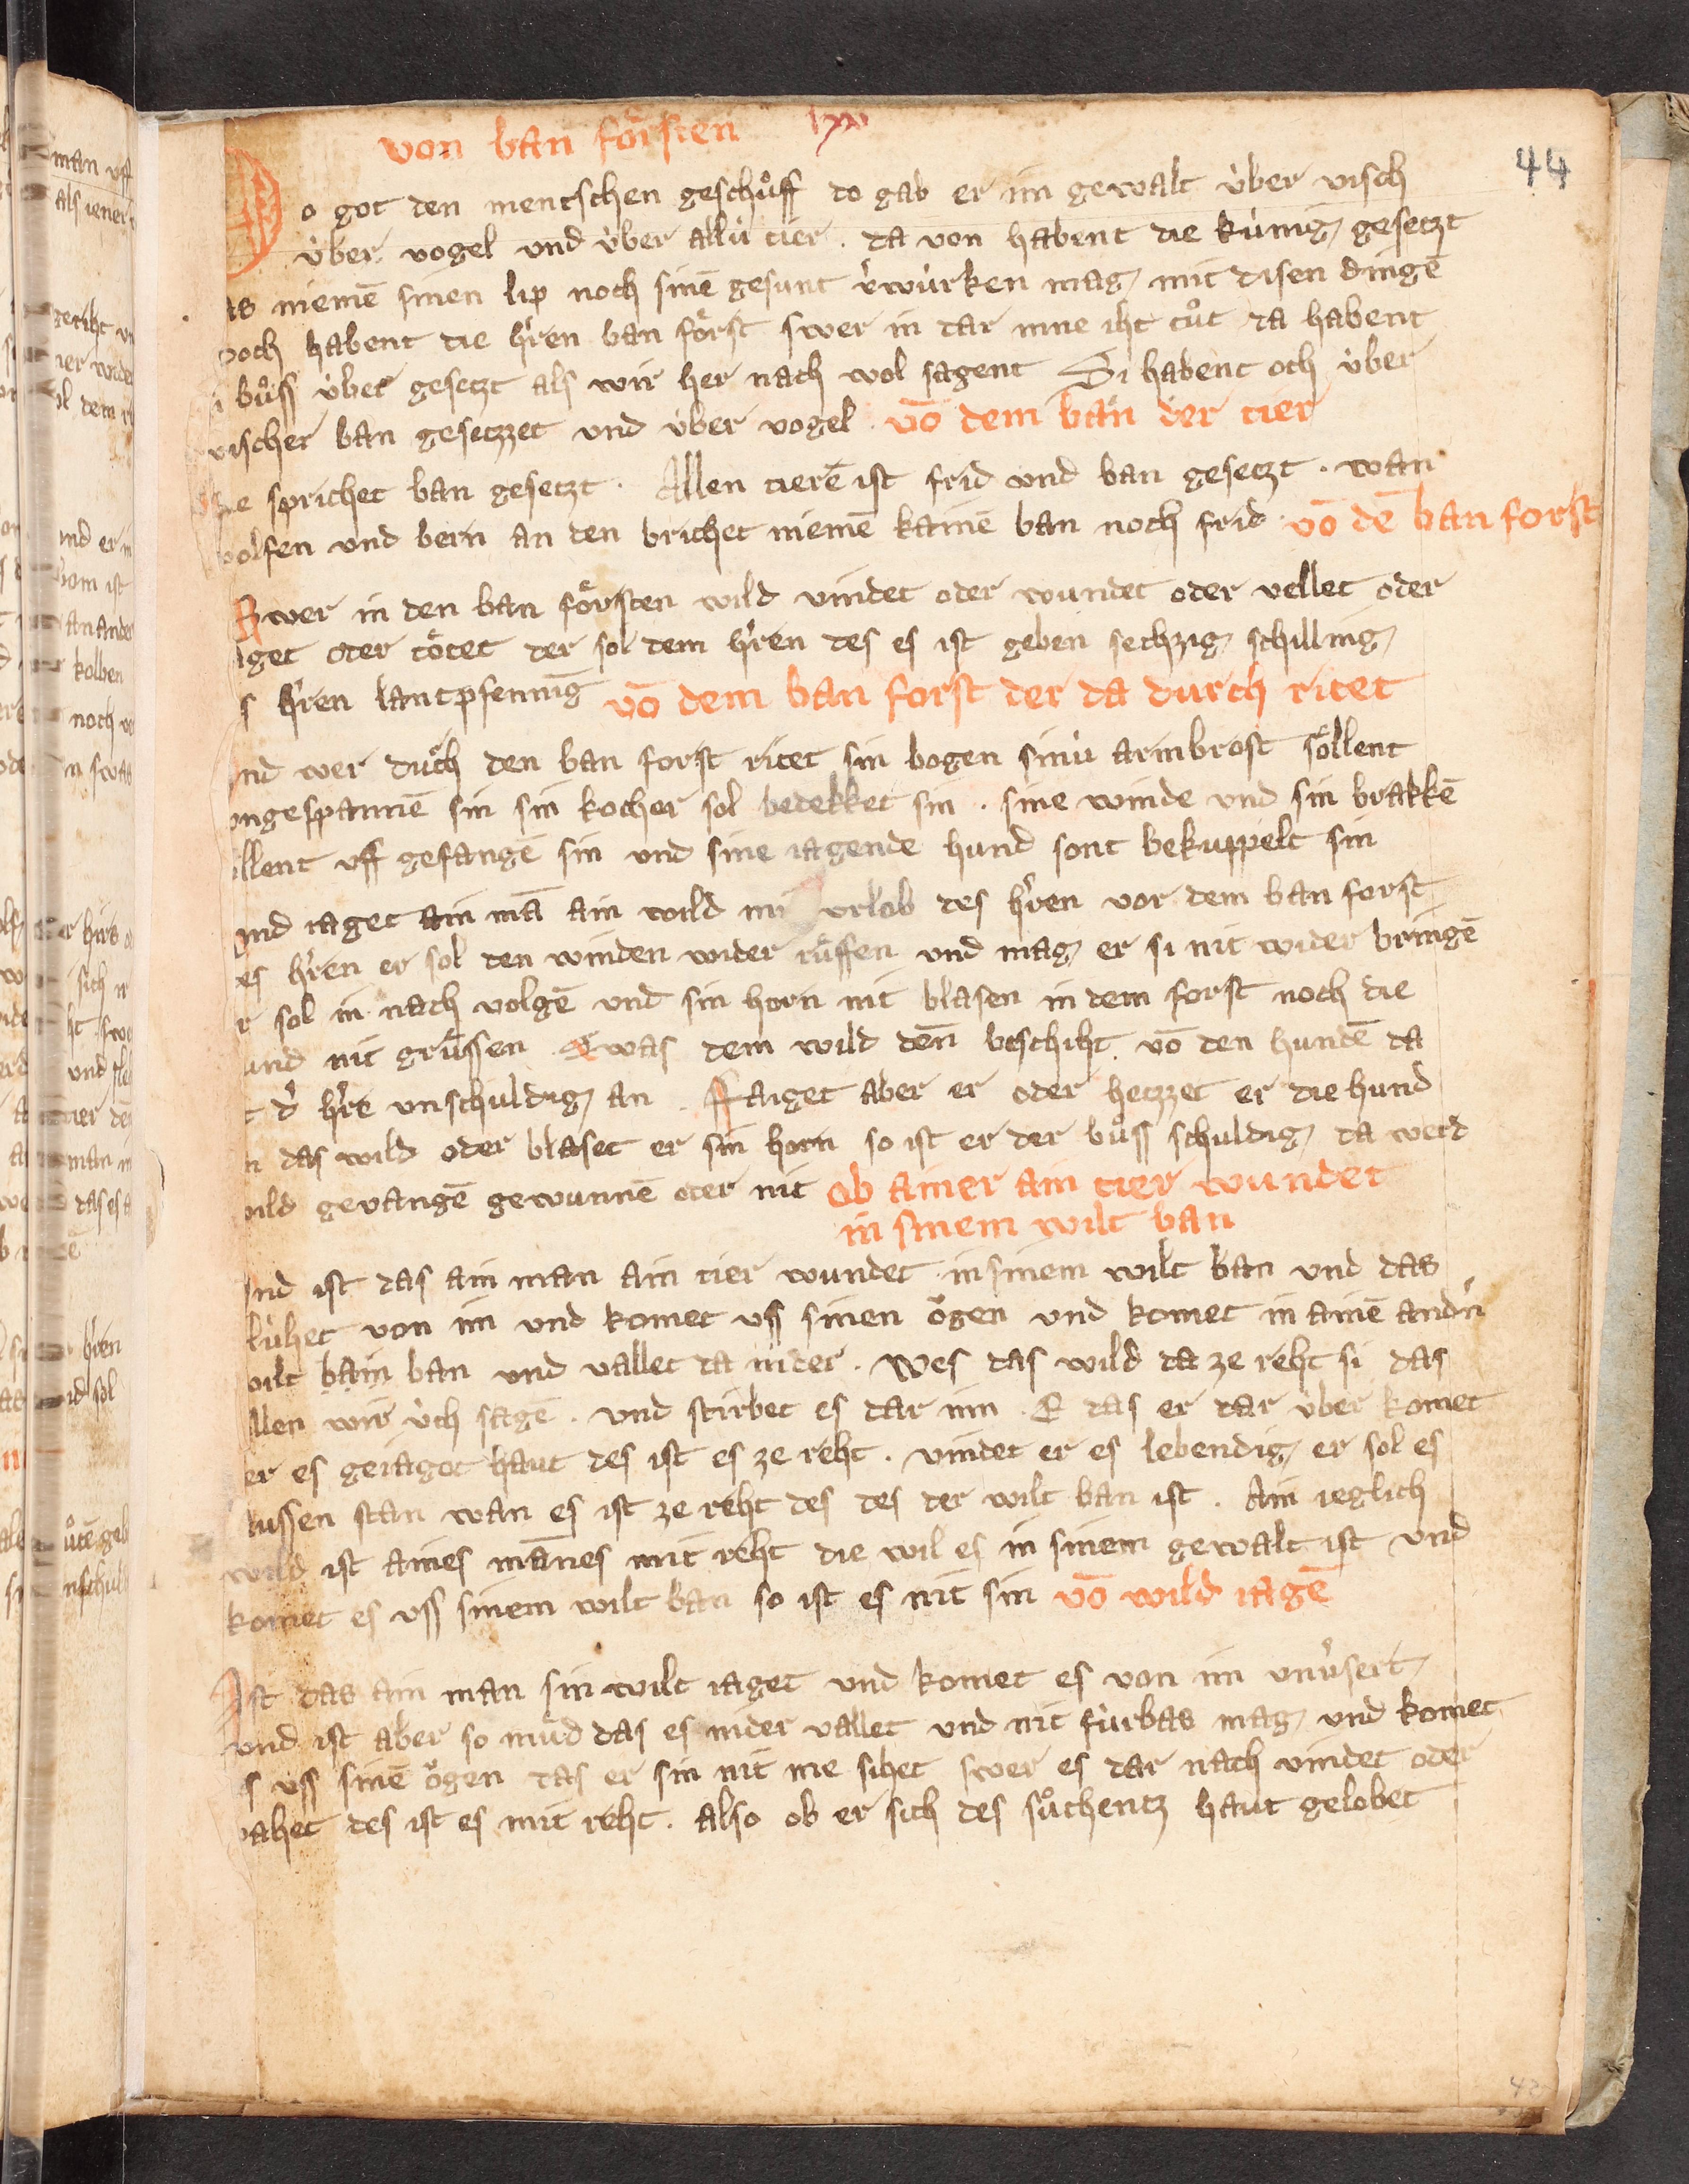 von ban fo᷑rsten lxv
44
Do got den mentschen geschůff do gab er im gewalt u᷑ber visch
u᷑ber vogel vnd u᷑ber allu᷑ tier . da von habent die ku᷑nig gesetzt
das niemē sinen lip noch sinē gesunt v᷑wu᷑rken mag mit disen dingē
doch habent die h᷑ren ban fo᷑rst swer in dar inne iht tůt da habent
si bůss u᷑ber gesetzt als wir her nach wol sagent Si habent och u᷑ber
vischer ban gesetzzet vnd u᷑ber vogel . vō dem ban der tier
sprichet ban gesetzt . Allen tierē ist frid vnd ban gesetzt . wan
wolfen vnd bern an den brichet niemē kainē ban noch frid . vō dē ban forst
Swer in den ban fo᷑rsten wild vindet oder wundet oder vellet oder
iaget oder to᷑tet der sol dem h᷑ren des es ist geben sechzig schilling
s h᷑ren lantpfennig vō dem ban forst der da durch ritet
vnd wer durch den ban forst ritet sin bogen sinu᷑ armbrost so᷑llent
vngespannē sin sin kocher sol bedekket sin . sine winde vnd sin brakkē
sollent vff gefangē sin vnd sine iagende hund sont bekuppelt sin
vnd iaget ain mā ain wild mit vrlob des h᷑ren vor dem ban forst
des h᷑ren er sol den winden wider ru᷑ffen vnd mag er si nit wider bringē
er sol in nach volgē vnd sin horn nit blasen in dem forst noch die
hund nit gru᷑ssen . Swas dem wild denn beschiht vō den hundē da
ist d᷑ h᷑re vnschuldig an . Raiget aber er oder hetzzet er die hund
an das wild oder blaset er sin horn so ist er der bůss schuldig da werd
wild gevangē gewunnē oder nit ob ainer ain tier wundet
in sinem wilt ban
Vnd ist das ain man ain tier wundet in sinem wilt ban vnd das
flu᷑het von im vnd komet vss sinen o᷑gen vnd komet in ainē and᷑n
wilt bain ban vnd vallet da nider . wes das wild da ze reht si das
sollen wir u᷑ch sagē . vnd stirbet es dar inn . E das er dar u᷑ber komet
der es geiagot haut des ist es ze reht . vindet er es lebendig er sol es
lussen stan wan es ist ze reht des des der wilt ban ist . Ain ieglich
wild ist aines mannes mit reht die wil es in sinem gewalt ist vnd
komet es vss sinem wilt ban so ist es nit sin vō wild iagē
Ist das ain man sin wilt iaget vnd komet es von im vnv᷑sert
vnd ist aber so mu᷑d das es nider vallet vnd nit fu᷑rbas mag vnd komet
es vss sinē o᷑gen das er sin nit me sihet swer es dar nach vindet oder
vahet des ist es mit reht . also ob er sich des sůchentz haut gelobet